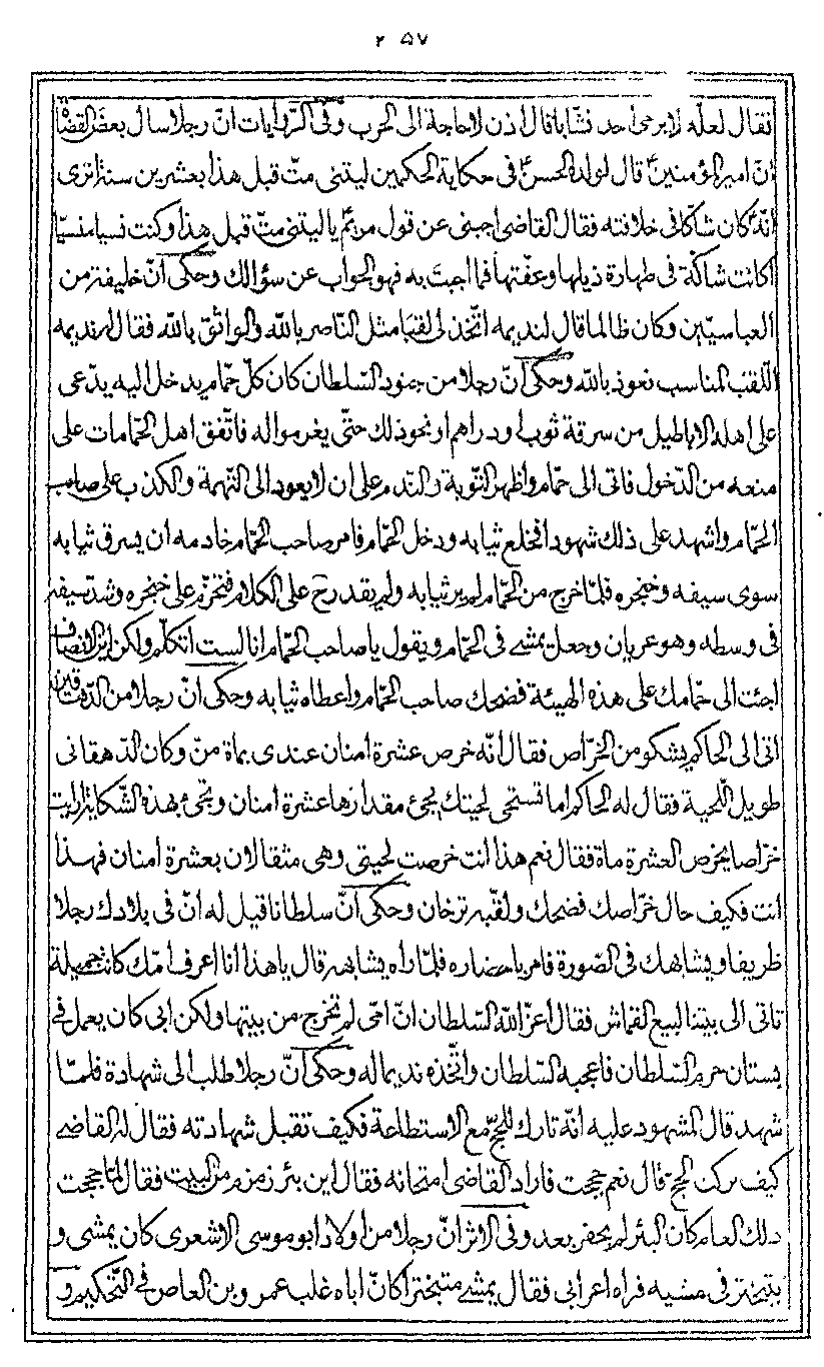 ٢ ۵٧
فقال لعلّه لا يرمى احد نشّابا قال اذن لا حاجة الى الحرب وفى الرّوايات انّ رجلا سال بعض القضاة
انّ امير المؤمنينؑ قال لولده الحسنؑ فى حكاية الحكمين ليتنى متّ قبل هذا بعشرين سنة اترى
انّهؑ كان شاكّا فى خلافته فقال القاضى اجبنى عن قول مريمؑ يا ليتنى متّ قبل هذا وكنت نسيا منسيّا
اكانت شاكّة فى طهارة ذيلها وعفّتها فما اجبتَ به فهو الجواب عن سؤالك وحكى انّ خليفة من
العباسيّين وكان ظالما قال لنديمه اتّخذ لى لقبا مثل النّاصر بالله والواثق بالله فقال له نديمه
اللّقب المناسب نعوذ بالله وحكى انّ رجلا من جنود السّلطان كان كلّ حمّام يدخل اليه يدّعى
على اهله الاباطيل من سرقة ثوب او دراهم او نحو ذلك حتّى يغرموا له فاتّفق اهل الحمّامات على
منعه من الدّخول فاتى الى حمّام واظهر التّوبة والنّدم على ان لا يعود الى التّهمة والكذب على صاحب
الحمّام واشهد على ذلك شهودا فخلع ثيابه ودخل الحمّام فامر صاحب الحمّام خادمه ان يسرق ثيابه
سوى سيفه وخنجره فلمّا خرج من الحمّام لم ير ثيابه ولم يقدر على الكلام فتحزّم على خنجره وشدّ سيفه
فى وسطه وهو عريان وجعل يمشى فى الحمّام ويقول يا صاحب الحمّام انا لست اتكلّم ولكن اين الانصاف
اجئت الى حمّامك على هذه الهيئة فضحك صاحب الحمّام واعطاه ثيابه وحكى انّ رجلا من الدّهاقين
اتى الى الحاكم يشكو من الخرّاص فقال انّه خرص عشرة امنان عندى بماة منّ وكان الدّهقانى
طويل اللّحية فقال له الحاكم اما تستحى لحيتك يجئ مقدارها عشرة امنان وتجئ بهذه الشّكاية ارايت
خرّاصا يخرص العشرة ماة فقال نعم هذا انت خرصت لحيتى وهى مثقالان بعشرة امنان فهذا
انت فكيف حال خرّاصك فضحك ولقّبه ترخان وحكى انّ سلطانا قيل له انّ فى بلادك رجلا
ظريفا ويشابهك فى الصّورة فامر باحضاره فلمّا راه يشابهه قال يا هذا انا اعرف امّك كانت جميلة
تاتى الى بيتنا لبيع القماش فقال اعزّ الله السّلطان انّ امّى لم تخرج من بيتها ولكن ابى كان يعمل فى
بستان حرم السّلطان فاعجبه السّلطان واتّخذه نديما له وحكى انّ رجلا طلب الى شهادة فلمّا
شهد قال المشهود عليه انّه تارك للحجّ مع الاستطاعة فكيف تقبل شهادته فقال له القاضى
كيف تركت الحجّ قال نعم حججت فاراد القاضى امتحانه فقال اين بئر زمزم من البيت فقال لمّا حججت
ذلك العام كان البئر لم يحفر بعد وفى الاثر انّ رجلا من اولاد ابو موسى الاشعرى كان يمشى و
يتبختر فى مشيه فراه اعرابى فقال يمشى متبخترا كانّ اباه غلب عمرو بن العاص فى التّحكيم و